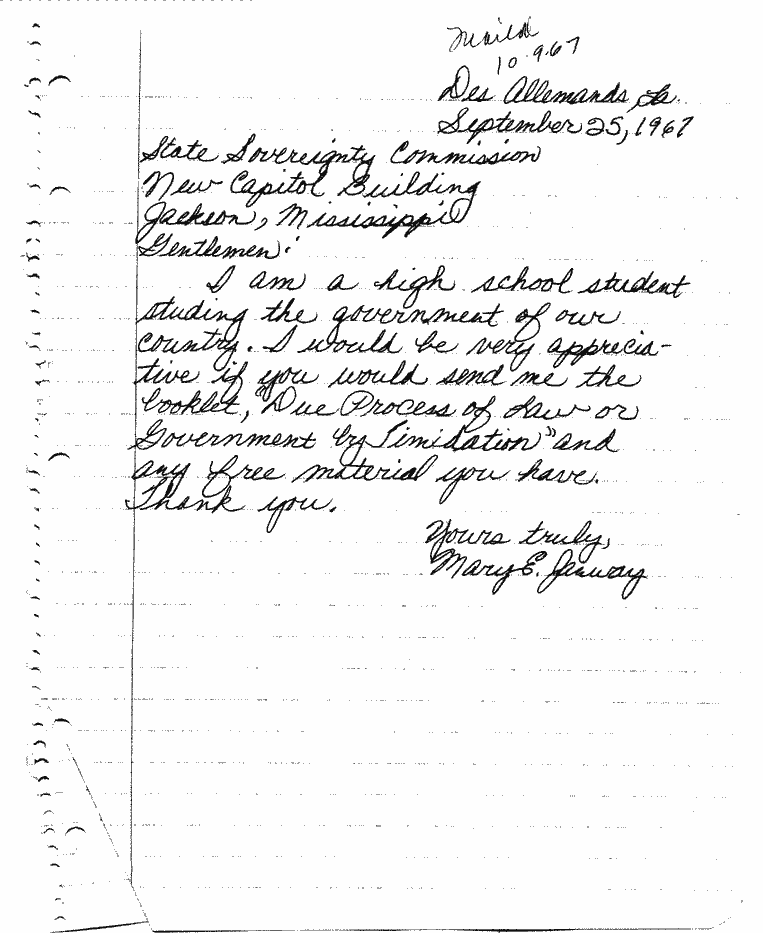 Maild
10-9-67
Des Allemands, La.
September 25, 1967
State Sovereignty Commission
New Capitol Building
Jackson, Mississippi
Gentlemen:
I am a high school student
studing the government of our
country. I would be very apprecia-
tive if you would send me the
booklet, "Due Process of Law or
Government by Timidation" and
any free material you have.
Thank you.
Yours truly,
Mary E.